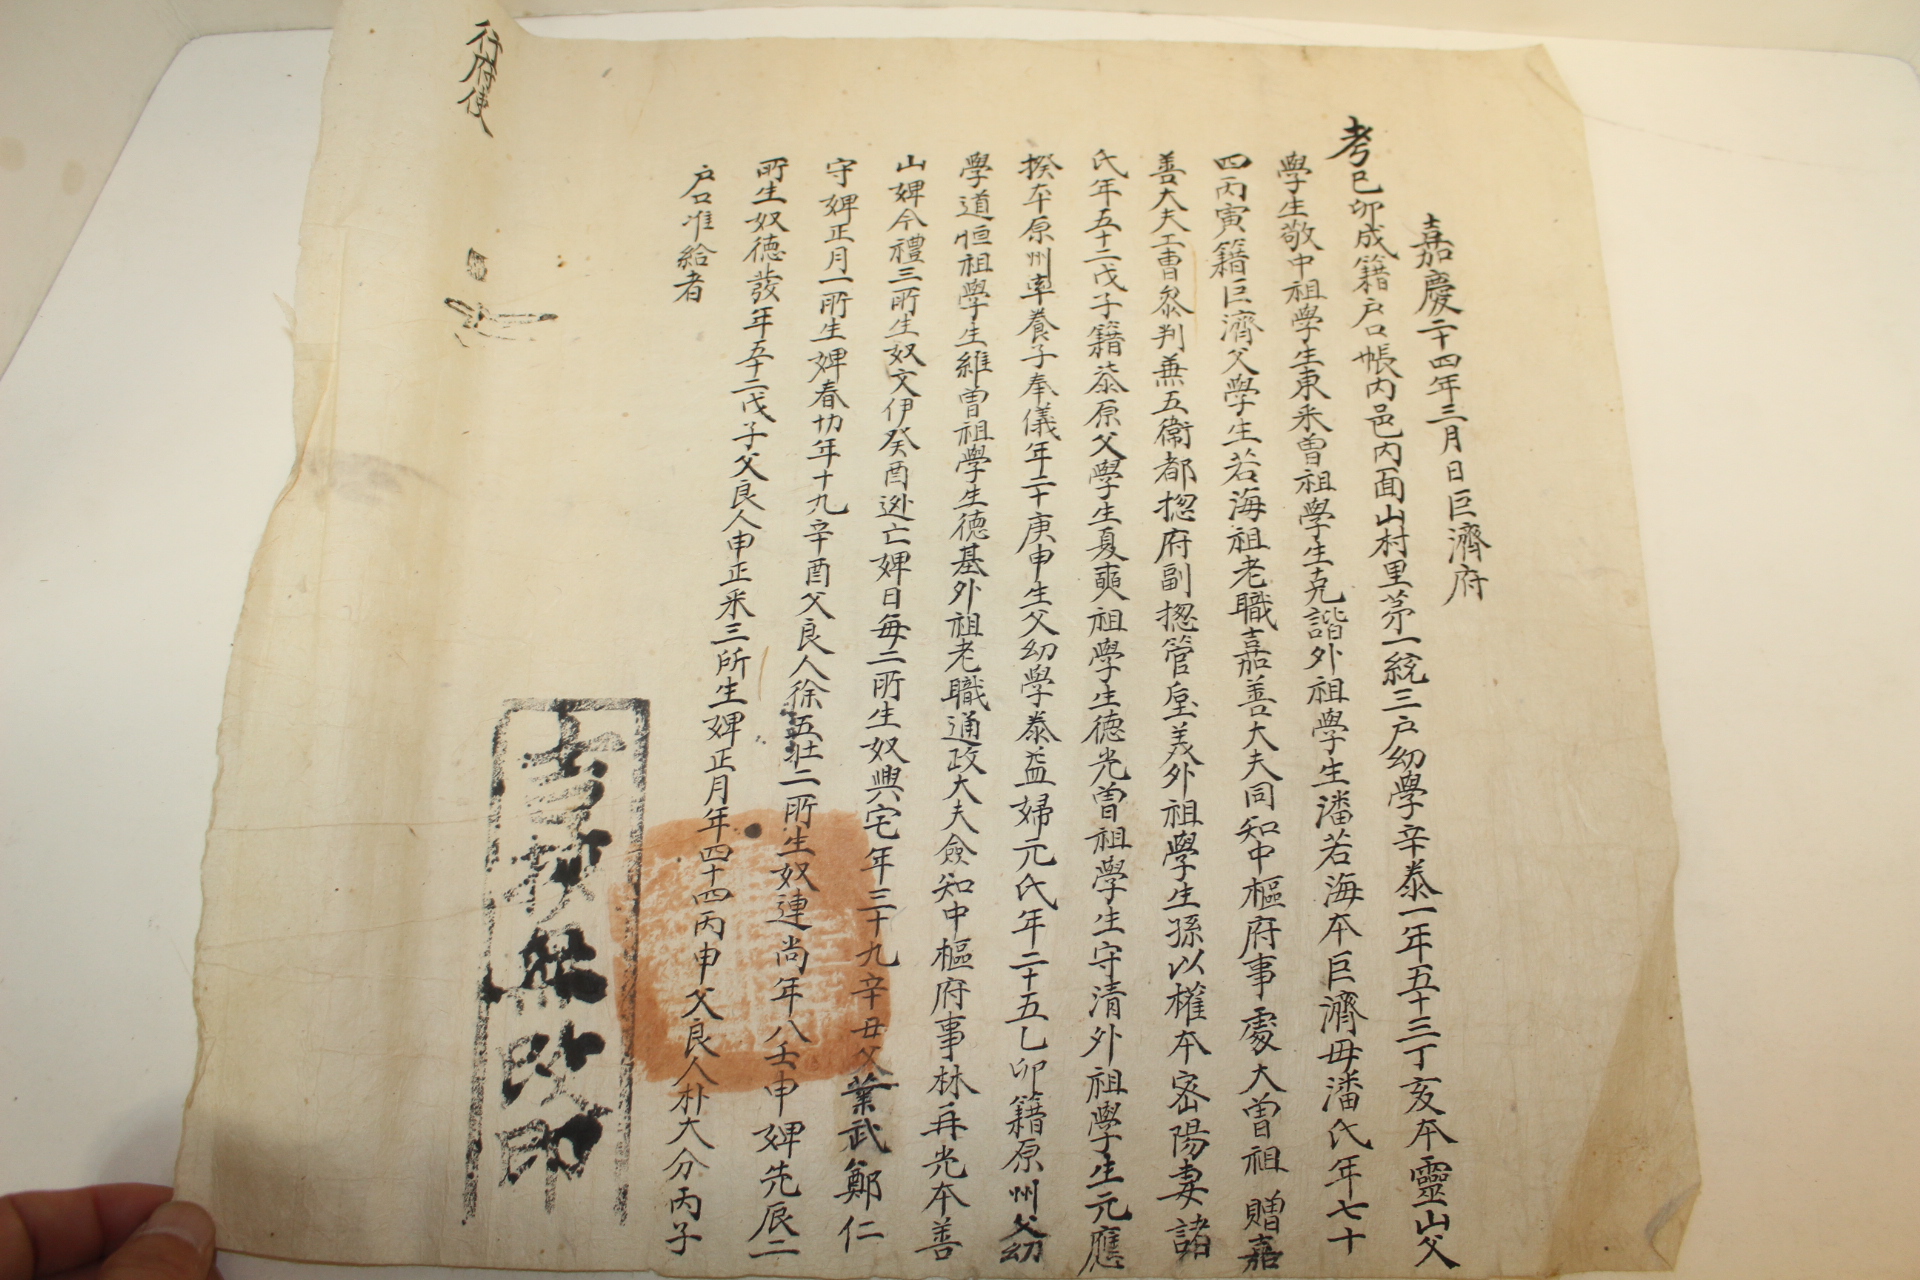 嘉慶二十四年三月日巨濟府
考己卯成籍戶口帳內邑內面山村里苐一統三戶幼學辛泰一年五十三丁亥本靈山父
學生敬中祖學生東釆曾祖學生克諧外祖學生潘若海本巨濟母潘氏年七十
四丙寅籍巨濟父學生若海祖老職嘉善大夫同知中樞府事處大曾祖 贈嘉
善大夫工曹叅判兼五衛都摠府副摠管垕義外祖學生孫以權本密陽妻諸
氏年五十二戊子籍漆原父學生夏奭祖學生德光曾祖學生守清外祖學生元應
揆本原州率養子奉儀年二十庚申生父幼學泰益婦元氏年二十五乙卯籍原州父幼
學道恒祖學生維曾祖學生德基外祖老職通政大夫僉知中樞府事林再光本善
山婢今禮三所生奴文伊癸酉逃亡婢日每二所生奴興宅年三十九辛丑父業武鄭仁
守婢正月一所生婢春切年十九辛酉父良人徐五壯二所生奴連尚年八壬申婢先辰二
所生奴德發年五十二戊子父良人申正釆三所生婢正月年四十四丙申父良人朴大分丙子
戶口准給者
行府使
周挾無改印